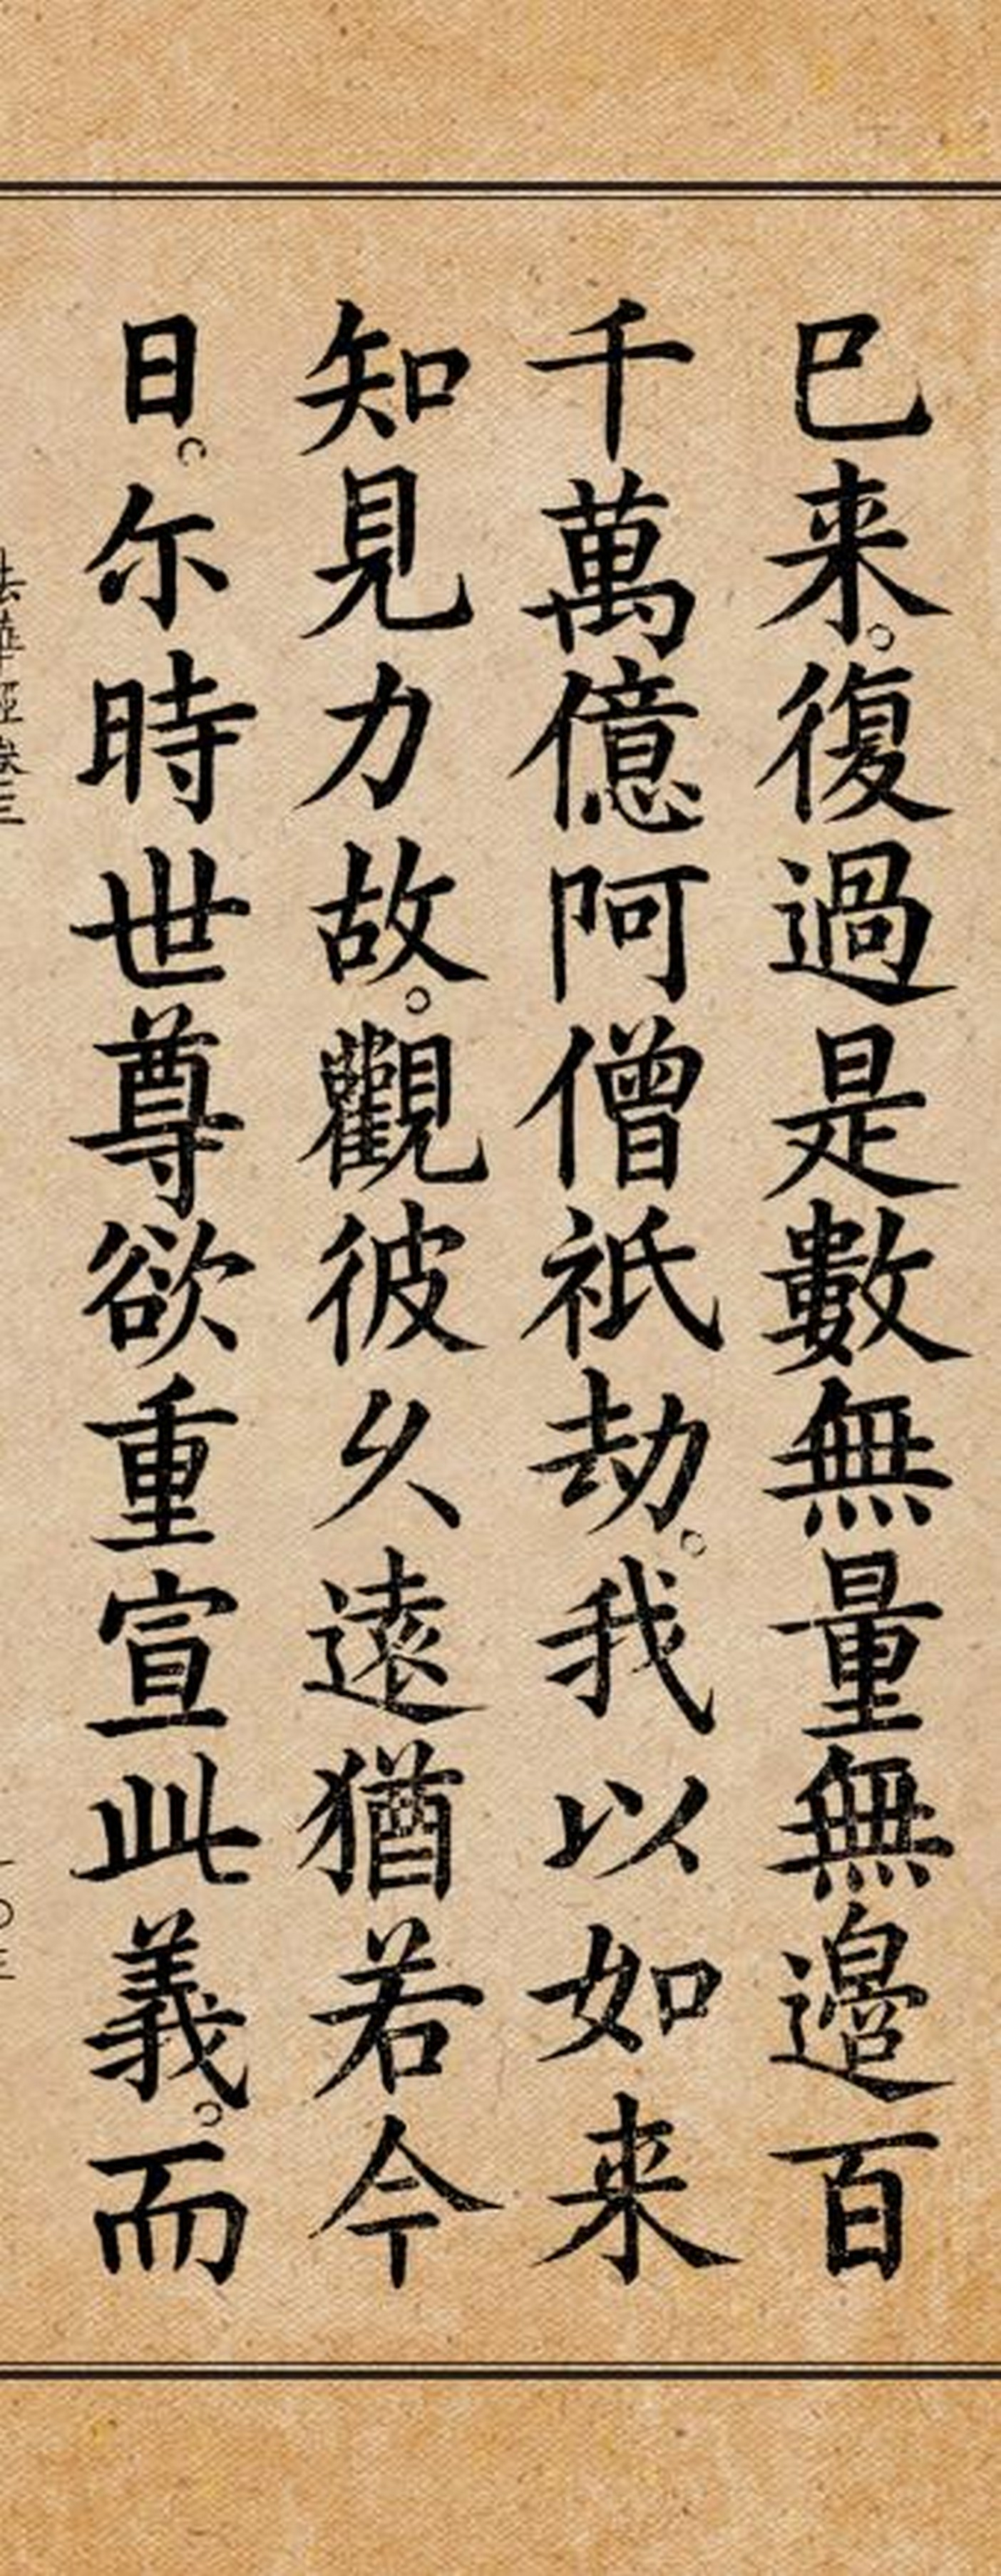 巳来。復過是數無量無邊百
千萬億阿僧祇劫。我以如来
知見力故。觀彼久遠猶若今
日。尓時世尊欲重宣此義。而
法華經卷三
一〇三